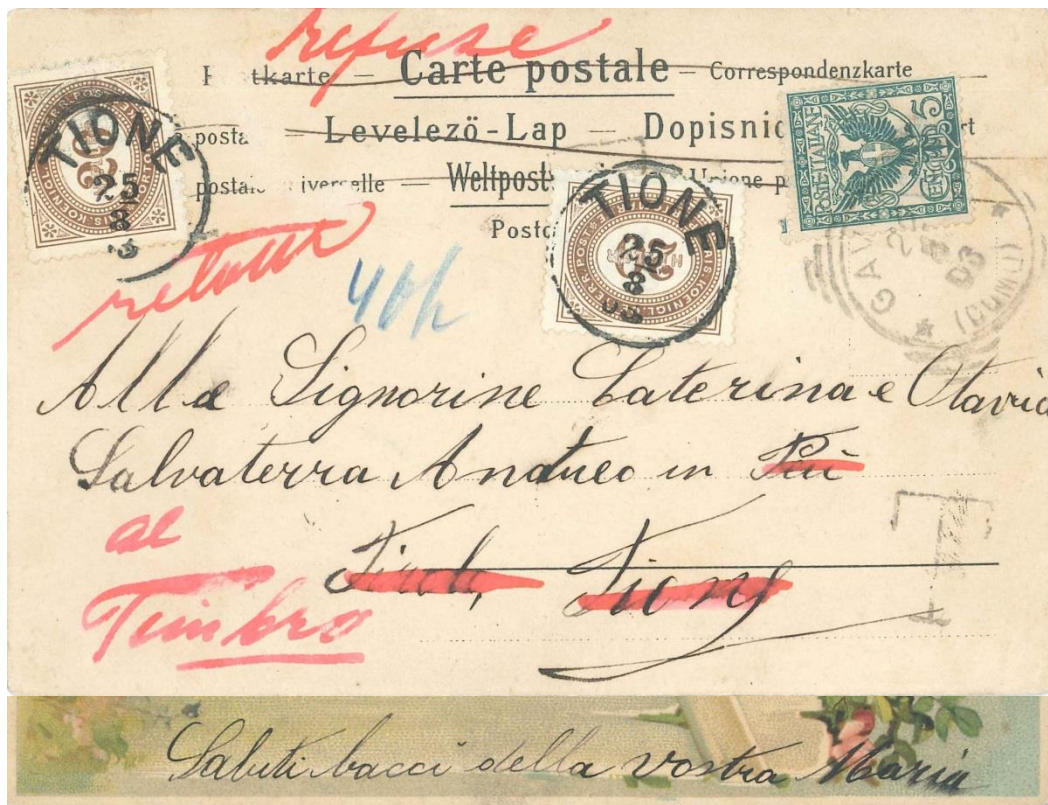 refuse
tkarte — Carte postale — Correspondenzkarte
posta — Levelező-Lap — Dopisnic
TIONE
25
3
postale iverselle — Weltpost Unione p
Postc
TIONE
25
3
03
POSTE ITALIANE
CENT 5
GAV
03
(COMO)
retour
40h
Alle Signorine Caterina e Otavia
Salvaterra Andreo in
al
Timbro
Tirolo, Tione
T
Saluti bacci della vostra Maria